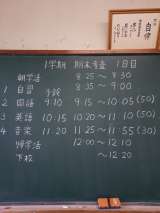 自律
1学期 期末考査 1日目
朝学活 8:25～8:30
1 自習 8:35～9:00
2 国語 予鈴 9:10 9:15～10:05(50)
3 英語 10:15 10:20～11:10(50)
4 音楽 11:20 11:25～11:55(30)
帰学活 12:00～12:10
下校 ～12:20